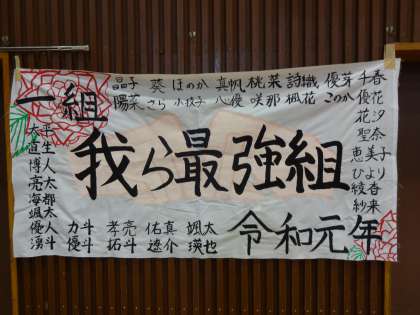 一組
晶子 葵 ほのか 真帆 桃菜 詩織 優芽 千春
陽菜 さら 小枝子 八優 咲那 楓花 このか 優花
花汐
聖奈
恵美子
ひより
綾香
紗来
我ら最強組
大平
直生
博人
亮太
海都
颯太
優人 力斗 孝亮 佑真 颯太
湧斗 優斗 拓斗 遼介 瑛也
令和元年